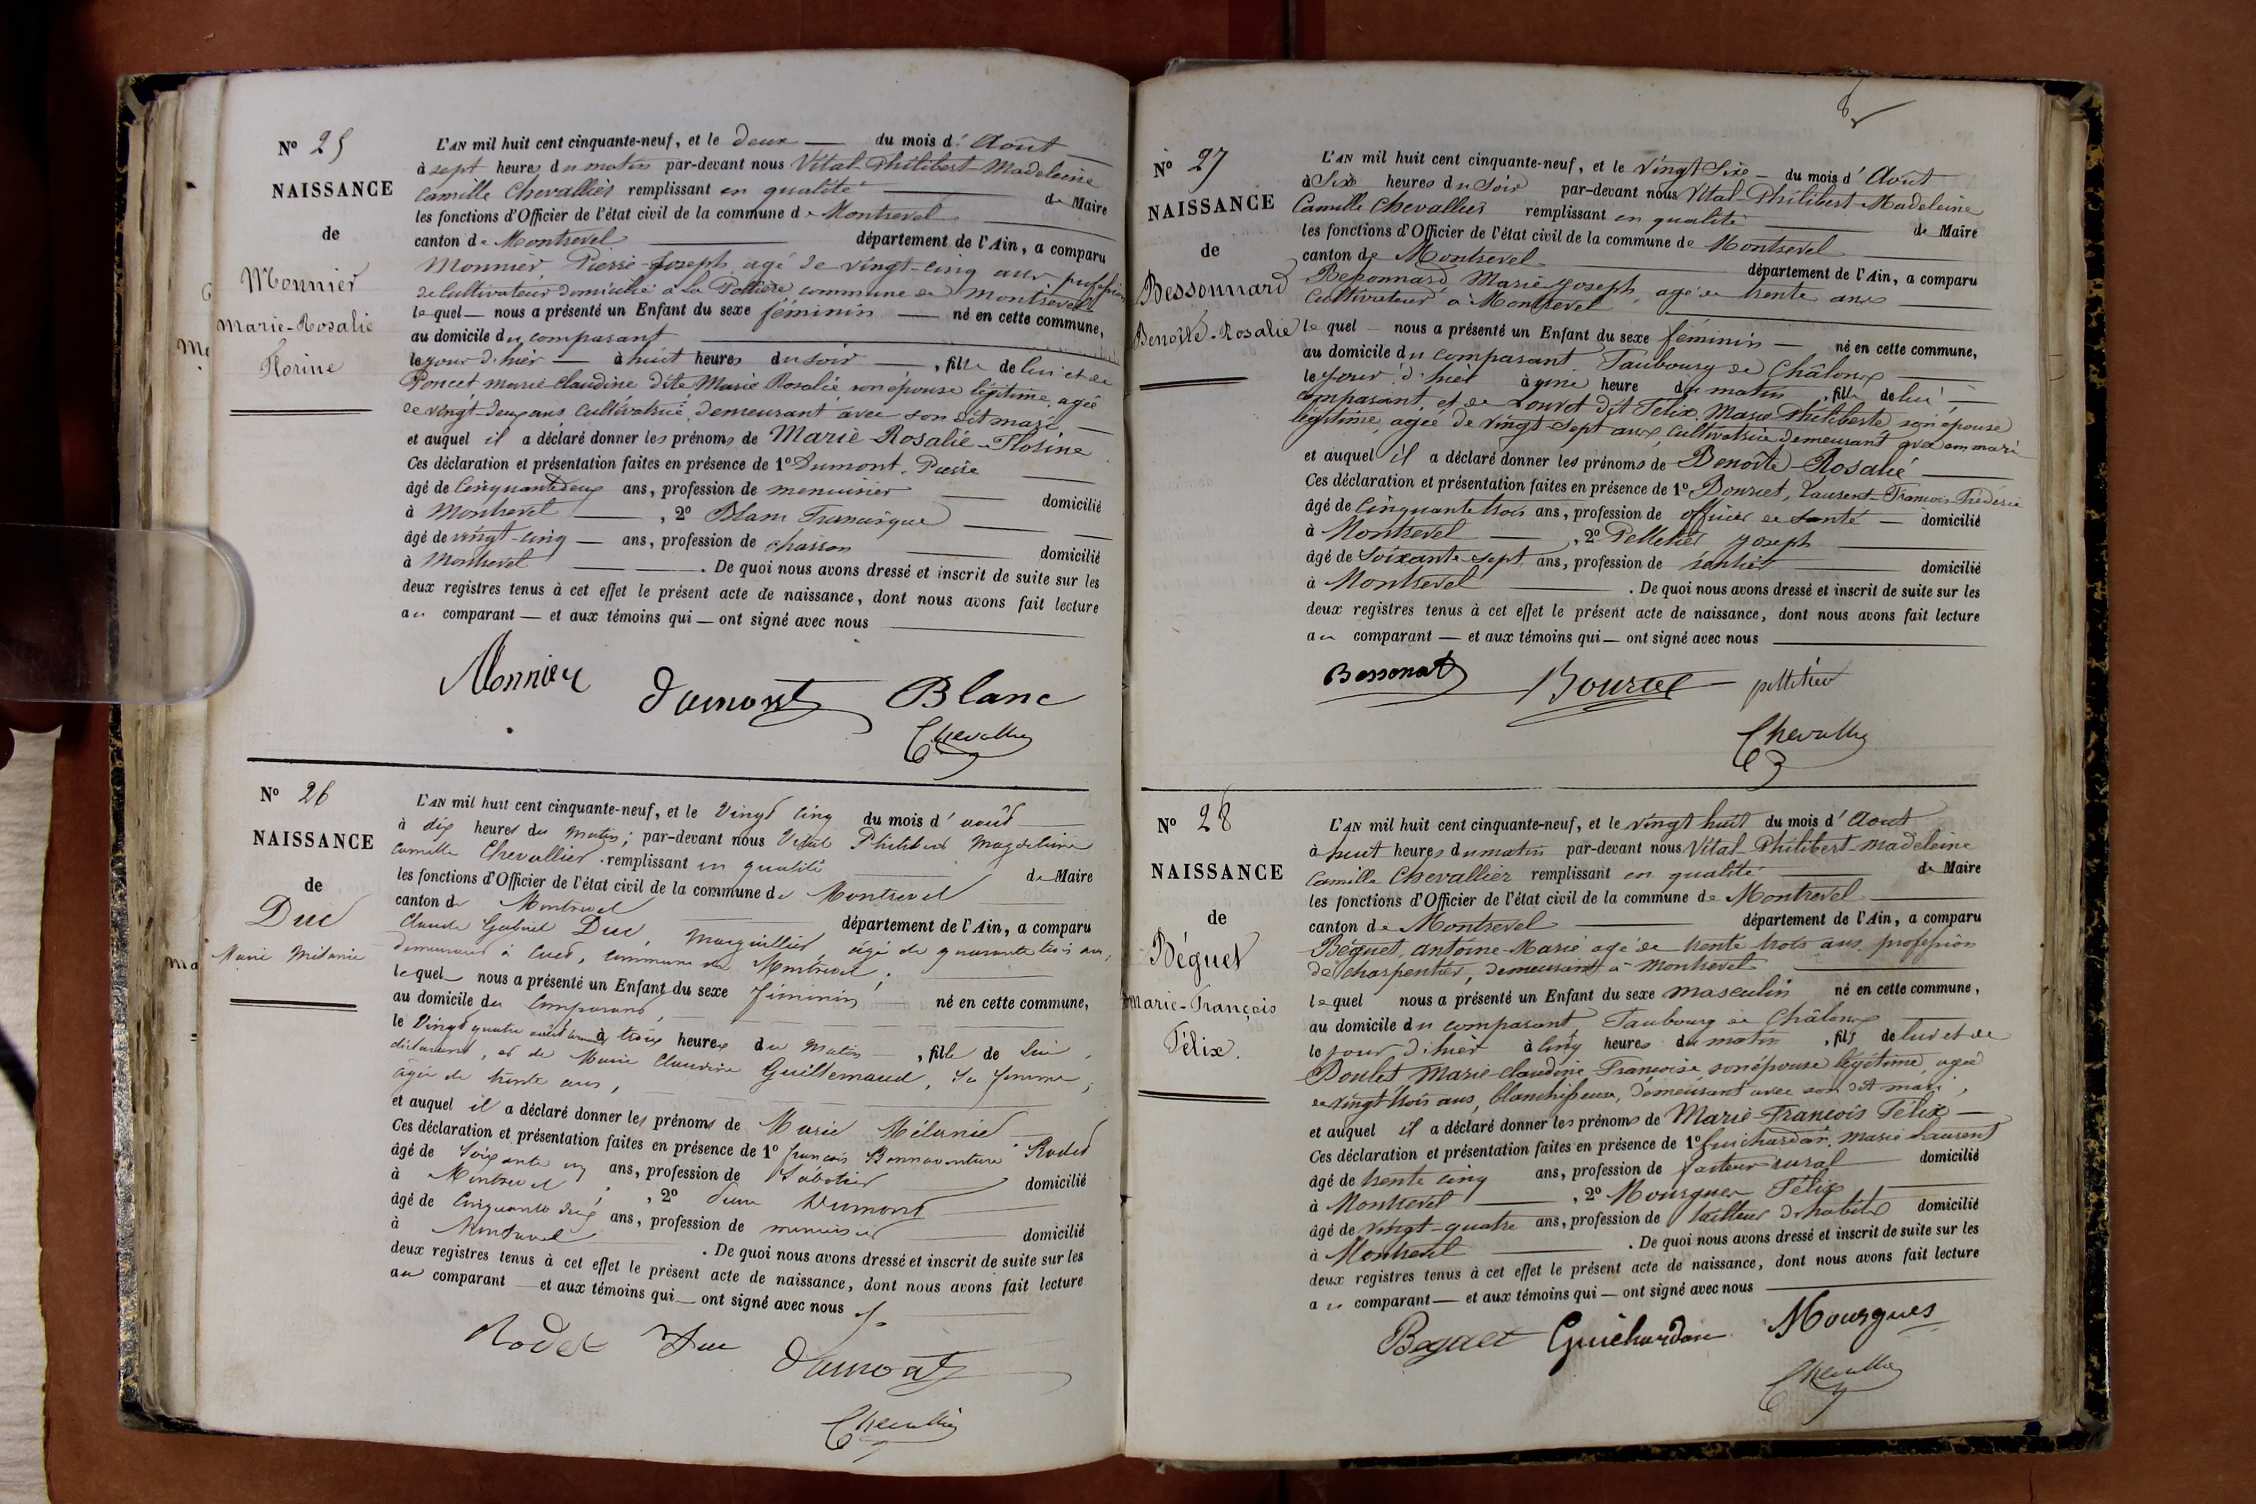 N° 25
NAISSANCE
de
Monnier
Marie-Rosalie
Florine
L'AN mil huit cent cinquante-neuf, et le deux du mois d'Août
à sept heures du matin par-devant nous Vital-Philibert-Madeleine
Camille Chevallier remplissant en qualité de Maire
les fonctions d'Officier de l'état civil de la commune de Montrevel
canton de Montrevel département de l'Ain, a comparu
Monnier, Pierre-Joseph, agé de vingt-cinq ans profession
de cultivateur domicilié à la commune de Montrevel
lequel nous a présenté un Enfant du sexe féminin né en cette commune,
au domicile du comparant
le jour d'hier à huit heures du soir, fille de lui et de
Poncet Marie Claudine dite Marie Rosalie son épouse légitime, agée
de vingt-deux ans cultivatrice, demeurant avec son dit mari
et auquel il a déclaré donner les prénoms de Marie Rosalie-Florine
Ces déclaration et présentation faites en présence de 1° Dumont, Pierre
âgé de cinquante deux ans, profession de menuisier domicilié
à Montrevel, 2° Blanc Francisque
âgé de vingt-cinq ans, profession de charron domicilié
à Montrevel. De quoi nous avons dressé et inscrit de suite sur les
deux registres tenus à cet effet le présent acte de naissance, dont nous avons fait lecture
au comparant et aux témoins qui ont signé avec nous
Monnier Dumont Blanc
Chevallier
N° 26
NAISSANCE
de
Duc
Marie Mélanie
L'AN mil huit cent cinquante-neuf, et le Vingt cinq du mois d'août
à dix heures du matin; par-devant nous Vital Philibert Magdeleine
Camille Chevallier remplissant en qualité de Maire
les fonctions d'Officier de l'état civil de la commune de Montrevel
canton de Montrevel département de l'Ain, a comparu
Claude Gabriel Duc, Marguillier, âgé de quarante trois ans,
demeurant à Cuet, commune de Montrevel,
lequel nous a présenté un Enfant du sexe féminin né en cette commune,
au domicile du comparant,
le Vingt quatre août à trois heures du matin, fille de lui,
déclarant, et de Marie Claudine Guillemaud, sa femme,
âgée de trente ans,
et auquel il a déclaré donner les prénoms de Marie Mélanie
Ces déclaration et présentation faites en présence de 1° françois Bonnaventure Rodet
âgé de soixante ans, profession de Sabotier domicilié
à Montrevel, 2° Dumont
âgé de cinquante deux ans, profession de menuisier domicilié
à Montrevel. De quoi nous avons dressé et inscrit de suite sur les
deux registres tenus à cet effet le présent acte de naissance, dont nous avons fait lecture
au comparant et aux témoins qui ont signé avec nous
Rodet Duc Dumont
Chevallier
N° 27
NAISSANCE
de
Bessonnard
Benoîte-Rosalie
L'AN mil huit cent cinquante-neuf, et le vingt Six du mois d'Août
à Six heures du Soir par-devant nous Vital-Philibert-Madeleine
Camille Chevallier remplissant en qualité de Maire
les fonctions d'Officier de l'état civil de la commune de Montrevel
canton de Montrevel département de l'Ain, a comparu
Bessonnard Marie Joseph, agé de trente ans
cultivateur à Montrevel
lequel nous a présenté un Enfant du sexe féminin né en cette commune,
au domicile du comparant Faubourg de Châlons
le jour d'hier à une heure du matin, fille de lui
comparant et de Louvet dit Félix, Marie Philiberte son épouse
légitime, agée de vingt-Sept ans, cultivatrice demeurant avec son mari
et auquel il a déclaré donner les prénoms de Benoîte-Rosalie
Ces déclaration et présentation faites en présence de 1° Bourcet, Laurent-François-Frédéric
âgé de cinquante trois ans, profession de officier de santé domicilié
à Montrevel, 2° Pelletier Joseph
âgé de soixante-sept ans, profession de rentier domicilié
à Montrevel. De quoi nous avons dressé et inscrit de suite sur les
deux registres tenus à cet effet le présent acte de naissance, dont nous avons fait lecture
au comparant et aux témoins qui ont signé avec nous
Bessonat Bourcet pelletier
Chevallier
N° 28
NAISSANCE
de
Béguet
Marie-François
Félix.
L'AN mil huit cent cinquante-neuf, et le vingt huit du mois d'Aout
à huit heures du matin par-devant nous Vital-Philibert-Madeleine
Camille Chevallier remplissant en qualité de Maire
les fonctions d'Officier de l'état civil de la commune de Montrevel
canton de Montrevel département de l'Ain, a comparu
Béguet, Antoine-Marie agé de trente trois ans profession
de charpentier, demeurant à Montrevel
lequel nous a présenté un Enfant du sexe masculin né en cette commune,
au domicile du comparant, Faubourg de Châlons
le jour d'hier à cinq heures du matin, fils de lui et de
Boulet Marie-Claudine-Françoise, son épouse légitime, agée
de vingt trois ans, blanchisseuse, demeurant avec son dit mari,
et auquel il a déclaré donner les prénoms de Marie-François Félix
Ces déclaration et présentation faites en présence de 1° Guichardan, Marie Laurent
âgé de trente cinq ans, profession de facteur rural domicilié
à Montrevel, 2° Mourgues Félix
âgé de vingt-quatre ans, profession de tailleur d'habits domicilié
à Montrevel. De quoi nous avons dressé et inscrit de suite sur les
deux registres tenus à cet effet le présent acte de naissance, dont nous avons fait lecture
au comparant et aux témoins qui ont signé avec nous
Beguet Guichardan Mourgues
Chevallier